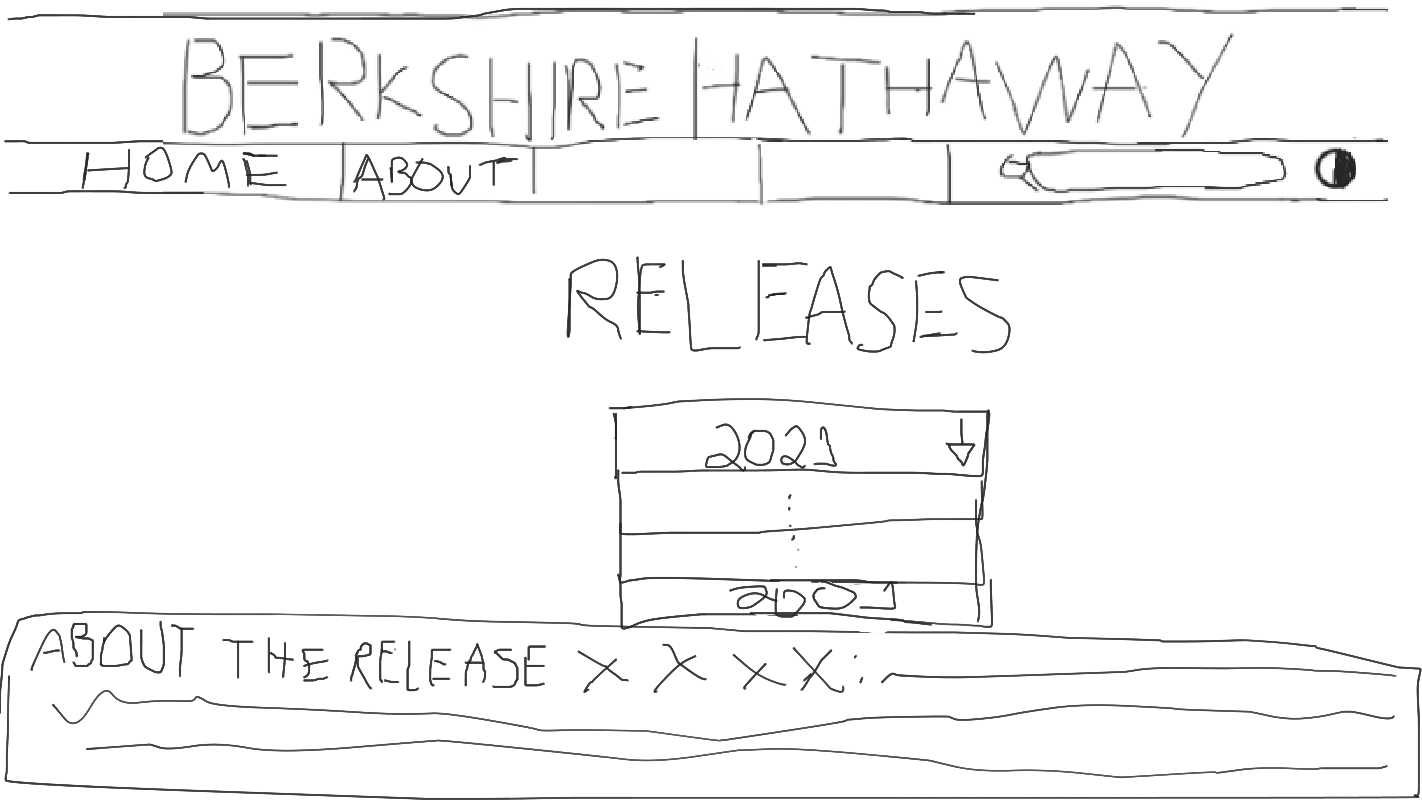 BERKSHIRE HATHAWAY
HOME ABOUT
RELEASES
2021
2001
ABOUT THE RELEASE X X X X: